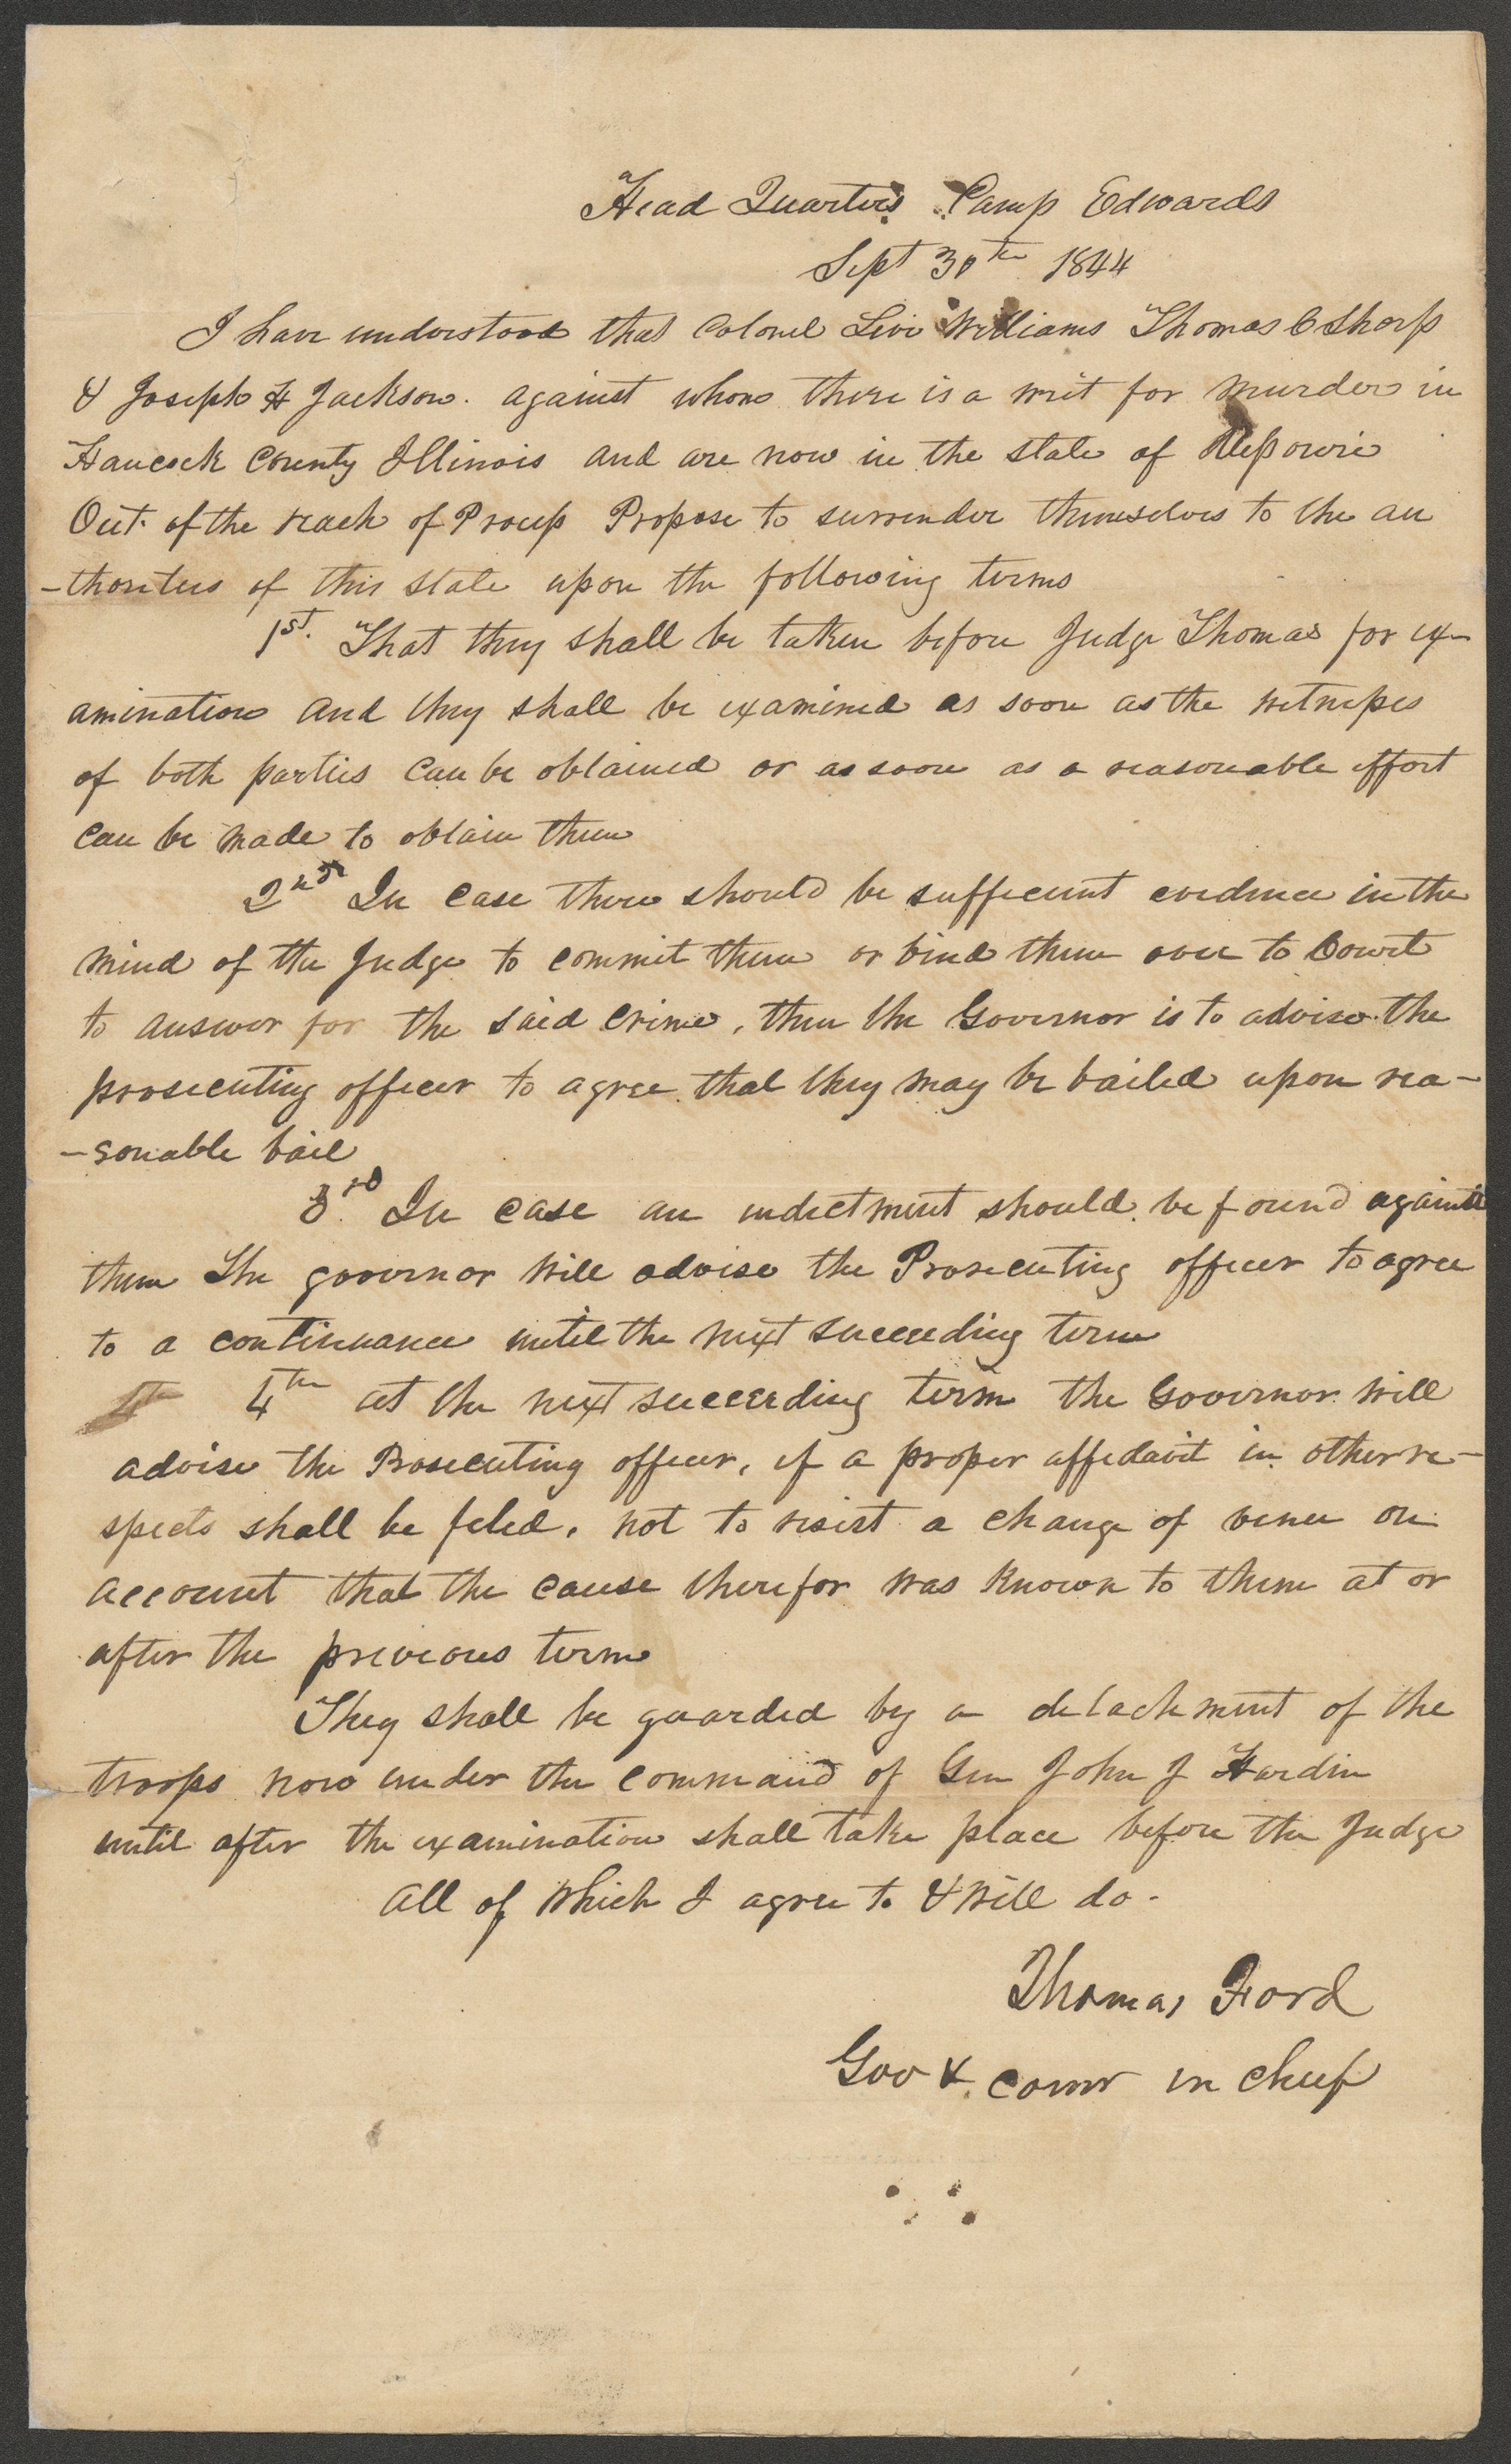 Head Quarters Camp Edwards
Sept 30th 1844
I have understood that Colonel Levi Williams Thomas C Sharp
& Joseph H Jackson. against whom there is a writ for murder in
Hancock County Illinois and are now in the state of Missouri
Out of the reach of Process Propose to surrender themselves to the au
-thorities of this state upon the following terms
1st. That they shall be taken before Judge Thomas for ex-
amination and they shall be examined as soon as the witnesses
of both parties can be obtained or as soon as a reasonable effort
can be made to obtain them
2nd In case there should be sufficient evidence in the
mind of the Judge to commit them or bind them over to Court
to answer for the said crime, then the Governor is to advise the
prosecuting officer to agree that they may be bailed upon rea-
-sonable bail
3rd In case an indictment should be found against
them The governor will advise the Prosecuting officer to agree
to a continuance until the next succeeding term
4th at the next succeeding term the Governor will
advise the Prosecuting officer, if a proper affidavit in other re-
spects shall be filed, not to resist a change of venue on
account that the cause therefor was known to them at or
after the previous term
They shall be guarded by a detachment of the
troops now under the command of Gen John J Hardin
until after the examination shall take place before the Judge
all of which I agree to & will do.
Thomas Ford
Gov & comr in chief